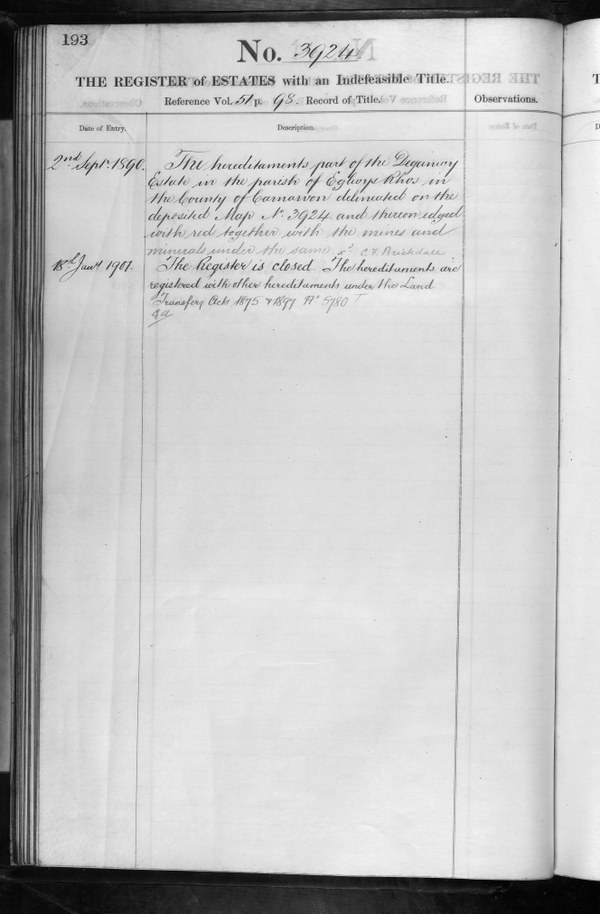 193
No. 3924
THE REGISTER of ESTATES with an Indefeasible Title.
Reference Vol. 51 p. 98. Record of Title.
Observations.
Date of Entry.
Description.
2nd Septr. 1890.
The hereditaments part of the Deganwy
Estate in the parish of Eglwys Rhos in
the County of Carnarvon delineated on the
deposited Map No. 3924 and thereon edged
with red together with the mines and
minerals under the same
18th Jany 1901.
The Register is closed The hereditaments are
registered with other hereditaments under the Land
Transfer Acts 1875 & 1897 No 5780